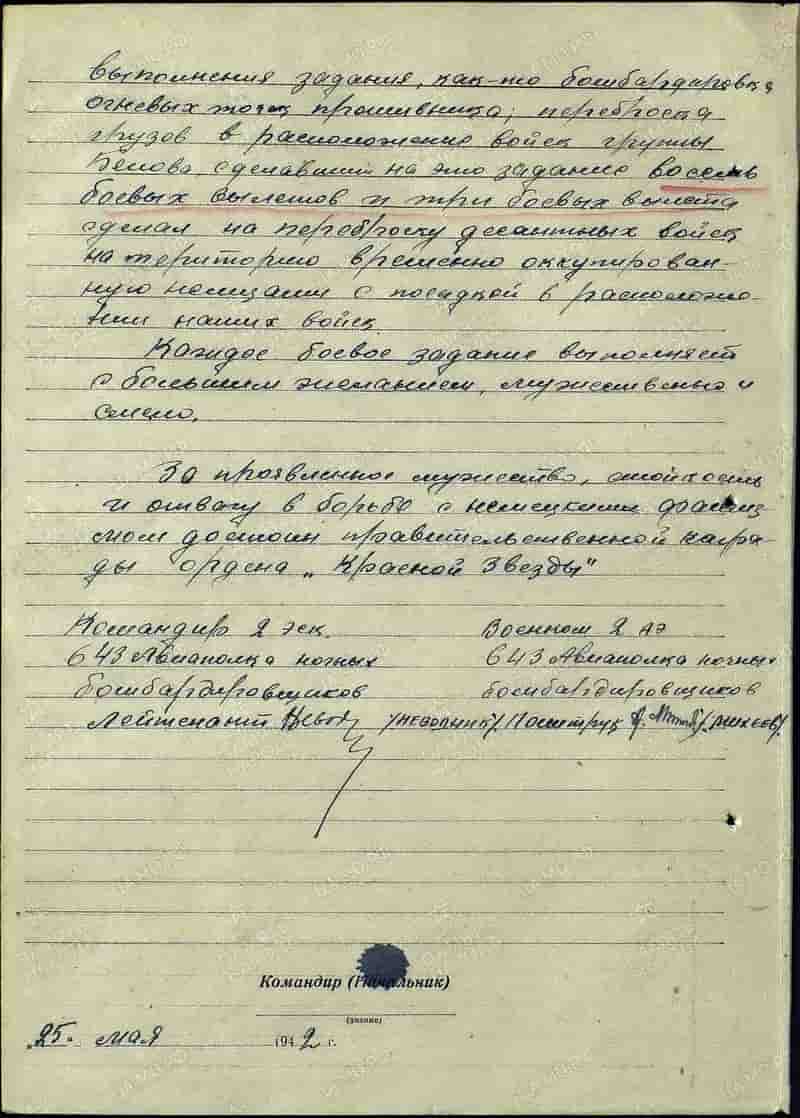 выполнения задания, как-то бомбардировка
огневых точек противника; переброска
грузов в расположение войск группы
Белова, сделавший на это задание восемь
боевых вылетов и три боевых вылета
сделал на переброску десантных войск
на територию временно оккупирован-
ную немцами с посадкой в расположе-
нии наших войск.
Каждое боевое задание выполняет
с большим желанием, мужественно и
смело.
За проявленное мужество, стойкость
и отвагу в борьбе с немецким фашиз-
мом достоин правительственной награ-
ды ордена „Красной Звезды"
Командир 2 эск.
643 Авиаполка ночных
бомбардировщиков
Лейтенант /Неволник/
Военком 2 АЭ
643 Авиаполка ночных
бомбардировщиков
Политрук /Михеев/.
Командир (Начальник)
(звание)
„25" мая 1942 г.